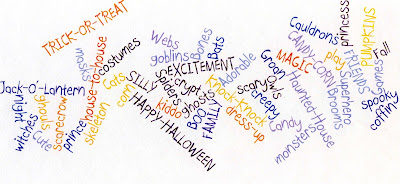 TRICK-OR-TREAT
Jack-O'-Lantern
night
witches
Cute
ghouls
scarecrow
prince
house-to-house
moon
costumes
skeleton
Cats
corn
SILLY
Webs
goblins
Bones
Bats
EXCITEMENT
spiders
crypt
HAPPY-HALLOWEEN
kiddo
ghosts
BOO!
FAMILY
Knock-Knock
dress-up
Adorable
scary
owls
creepy
Groan
MAGIC
Candy
monsters
Haunted-House
CANDY CORN
Cauldrons
princess
play
Superhero
Brooms
FRIENDS
PUMPKINS
Games
Fall
spooky
coffin